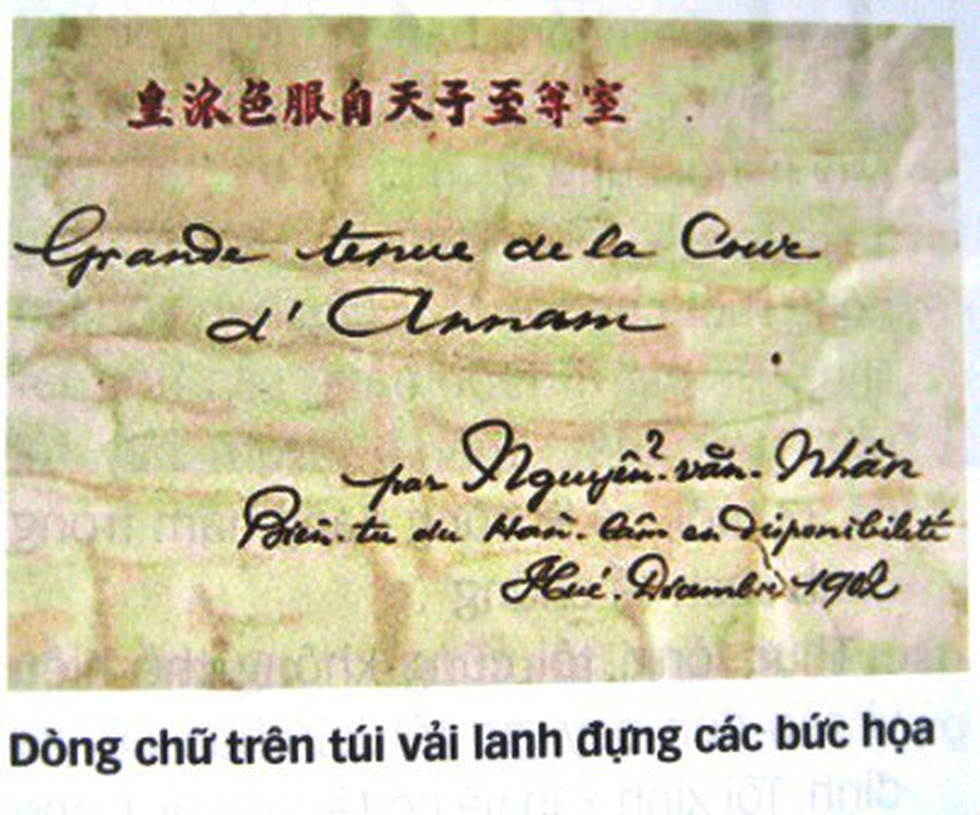 皇浓色服自天子至等室
Grande tenue de la Cour
d'Annam
par Nguyễn văn Nhân
Biên-tu du Hàn-lâm en disponibilité
Hué. Décembre 1902
Dòng chữ trên túi vải lanh đựng các bức họa